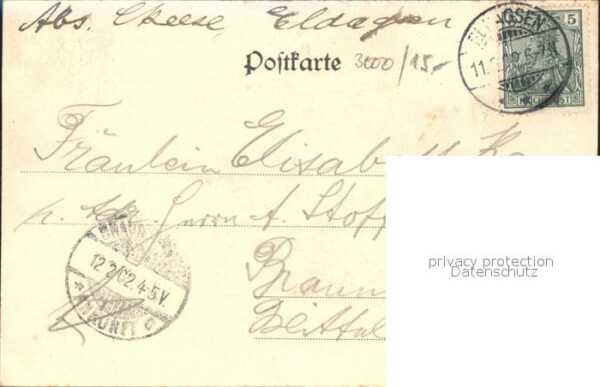 Abs. Cheese, Eldagsen
Postkarte 3000/15,-
ELDAGSEN
11.2.02 6-7N
5
REICHSPOST
Fräulein Elisabeth
p. adr. Herrn A. Stopp
12.2.02.4-5V.
ANKUNFT c
Braun
privacy protection
Datenschutz